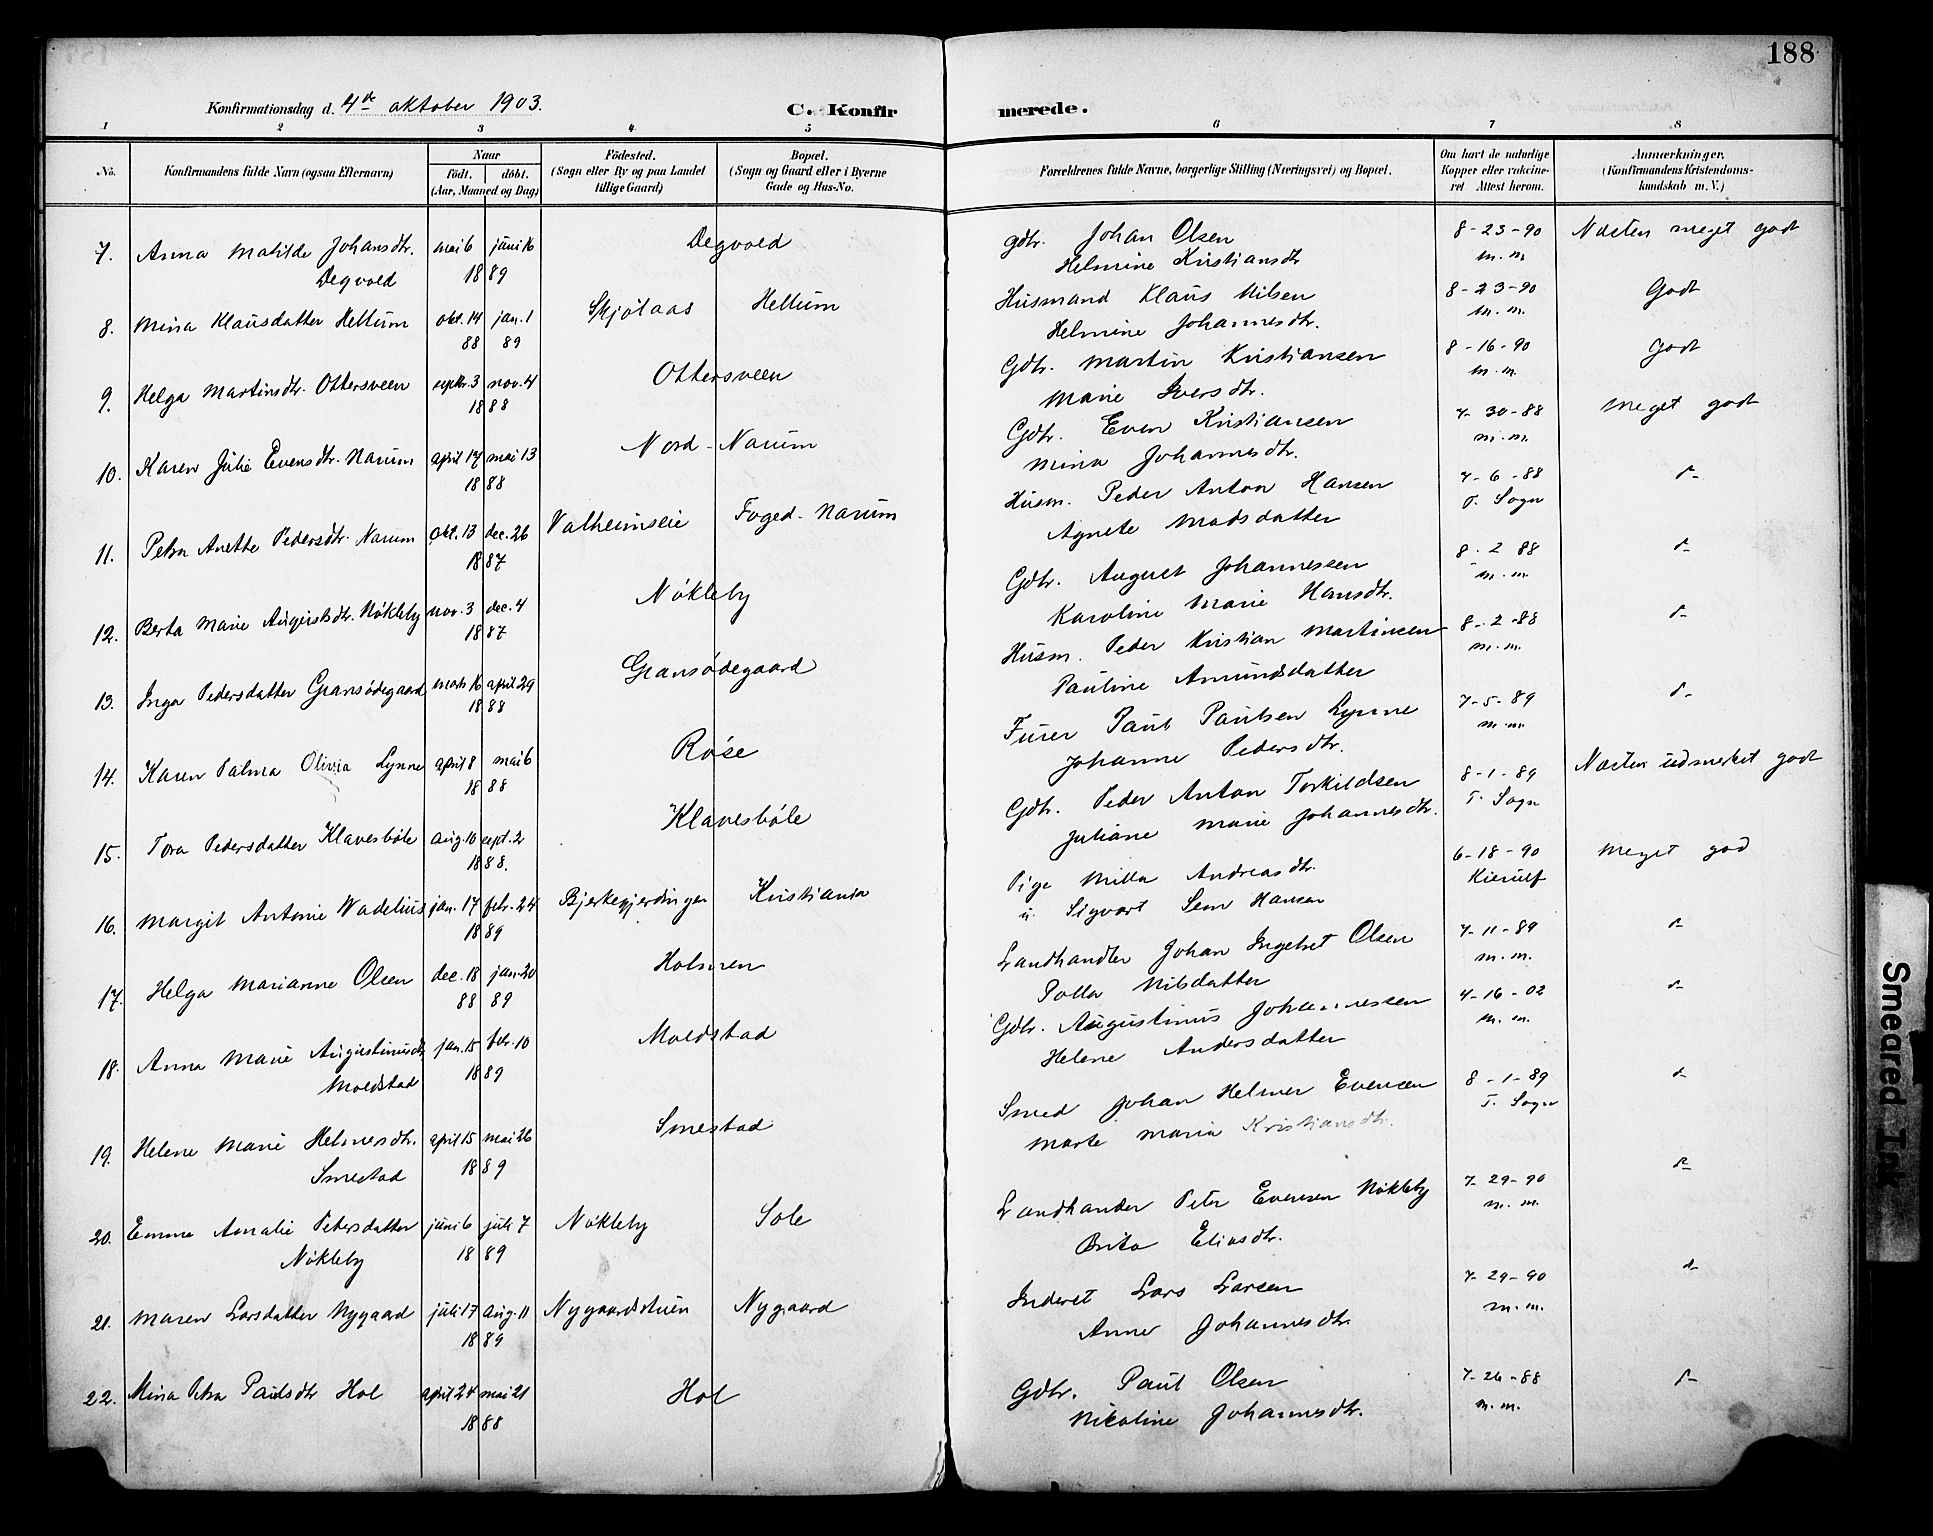 188
Konfirmationsdag d. 4de oktober 1903.
C. Konfirmerede.
1 2 3 4 5 6 7 8
No. Konfirmandens fulde Navn (ogsaa Efternavn) Naar födt. döbt. (Aar, Maaned og Dag) Födested. (Sogn eller By og paa Landet tillige Gaard) Bopæl. (Sogn og Gaard eller i Byerne Gade og Hus-No. Forældrenes fulde Navne, borgerlige Stilling (Næringsvei) og Bopæl. Om havt de naturlige Kopper eller vaccineret Attest herom. Anmærkninger. (Konfirmandens Kristendomskundskab m. V.)
7. Anna Matilde Johansdtr. mai 6 juni 16 Degvold Gdbr. Johan Olsen 8-23-90 Næsten meget godt
Degvold 1889 Helmine Kristiansdtr m. m.
8. Mina Klausdatter Hellum okt. 14 jan. 1 Skjølaas Hellum Husmand Klaus Nilsen 8-23-90 Godt
88 89 Helmine Johannesdtr. m. m.
9. Helga Martinsdtr. Ottersveen septr. 3 nov. 4 Ottersveen Gdbr. Martin Kristiansen 8-16-90 Godt
1888 Marie Iversdtr. m. m.
10. Karen Julie Evensdtr. Narum april 17 mai 13 Nord-Narum Gdbr. Even Kristiansen 7-30-88 Meget godt
1888 Mina Johannesdtr. m. m.
11. Petra Anette Pedersdtr. Narum okt. 13 dec. 26 Valheimseie Foged-Narum Husm. Peder Anton Hansen 7-6-88 d-
1887 Agnete Madsdatter T. Sogn
12. Berta Marie Augustsdtr. Nökleby nov. 3 dec. 4 Nökleby Gdbr. August Johannessen 8-2 88 d-
1887 Karoline Marie Hansdtr. m. m.
13. Inga Pedersdatter Gransödegaard marts 16 april 29 Gransödegaard Husm. Peder Kristian Martinsen 8-2-88 d-
1888 Pauline Amundsdatter m. m.
14. Karen Palma Olivia Lynne april 8 mai 6 Röse Furer Paul Paulsen Lynne 7-5-89 d-
1888 Johanne Pedersdtr. m. m.
15. Tora Pedersdatter Klavesböle aug. 10 sept. 2 Klavesböle Gdbr. Peder Anton Torkildsen 8-1-89 Næsten udmerket godt
1888. Juliane Marie Johannesdtr. T. Sogn
16. Margit Antonie Wadelius jan. 17 febr. 24 Bjerkegjerdingen Kristiania Pige Milla Andreasdtr. 6-18-90 Meget god
1889 u. Sigvart Sem Hansen Kierulf
17. Helga Marianne Olsen dec. 18 jan. 20 Holmen Landhandler Johan Ingebret Olsen 7-11-89 d-
88 89 Polla Nilsdatter m. m.
18. Anna Marie Augustinusdtr jan. 15 febr. 10 Moldstad Gdbr. Augustinus Johannessen 4-16-02 d-
Moldstad 1889 Helene Andersdatter m. m.
19. Helene Marie Helmersdtr. april 15 mai 26 Smestad Smed Johan Helmer Evensen 8-1-89 d-
Smestad 1889 Marte Maria Kristiansdtr. T. Sogn
20. Emma Amalie Petersdatter juni 6 juli 7 Nökleby Sole Landhandler Peter Evensen Nökleby 7-29-90 d-
Nökleby 1889 Brita Eliasdtr. m. m.
21. Maren Larsdatter Nygaard juli 17 aug. 11 Nygaardstuen Nygaard Inderst Lars Larsen 7-29-90 d-
1889 Anne Johannesdtr. m. m.
22. Mina Petra Paulsdtr Hol april 24 mai 21 Hol Gdbr. Paul Olsen 7-26-88 d-
1888 Nicoline Johannesdtr. m. m.
Smeared Ink